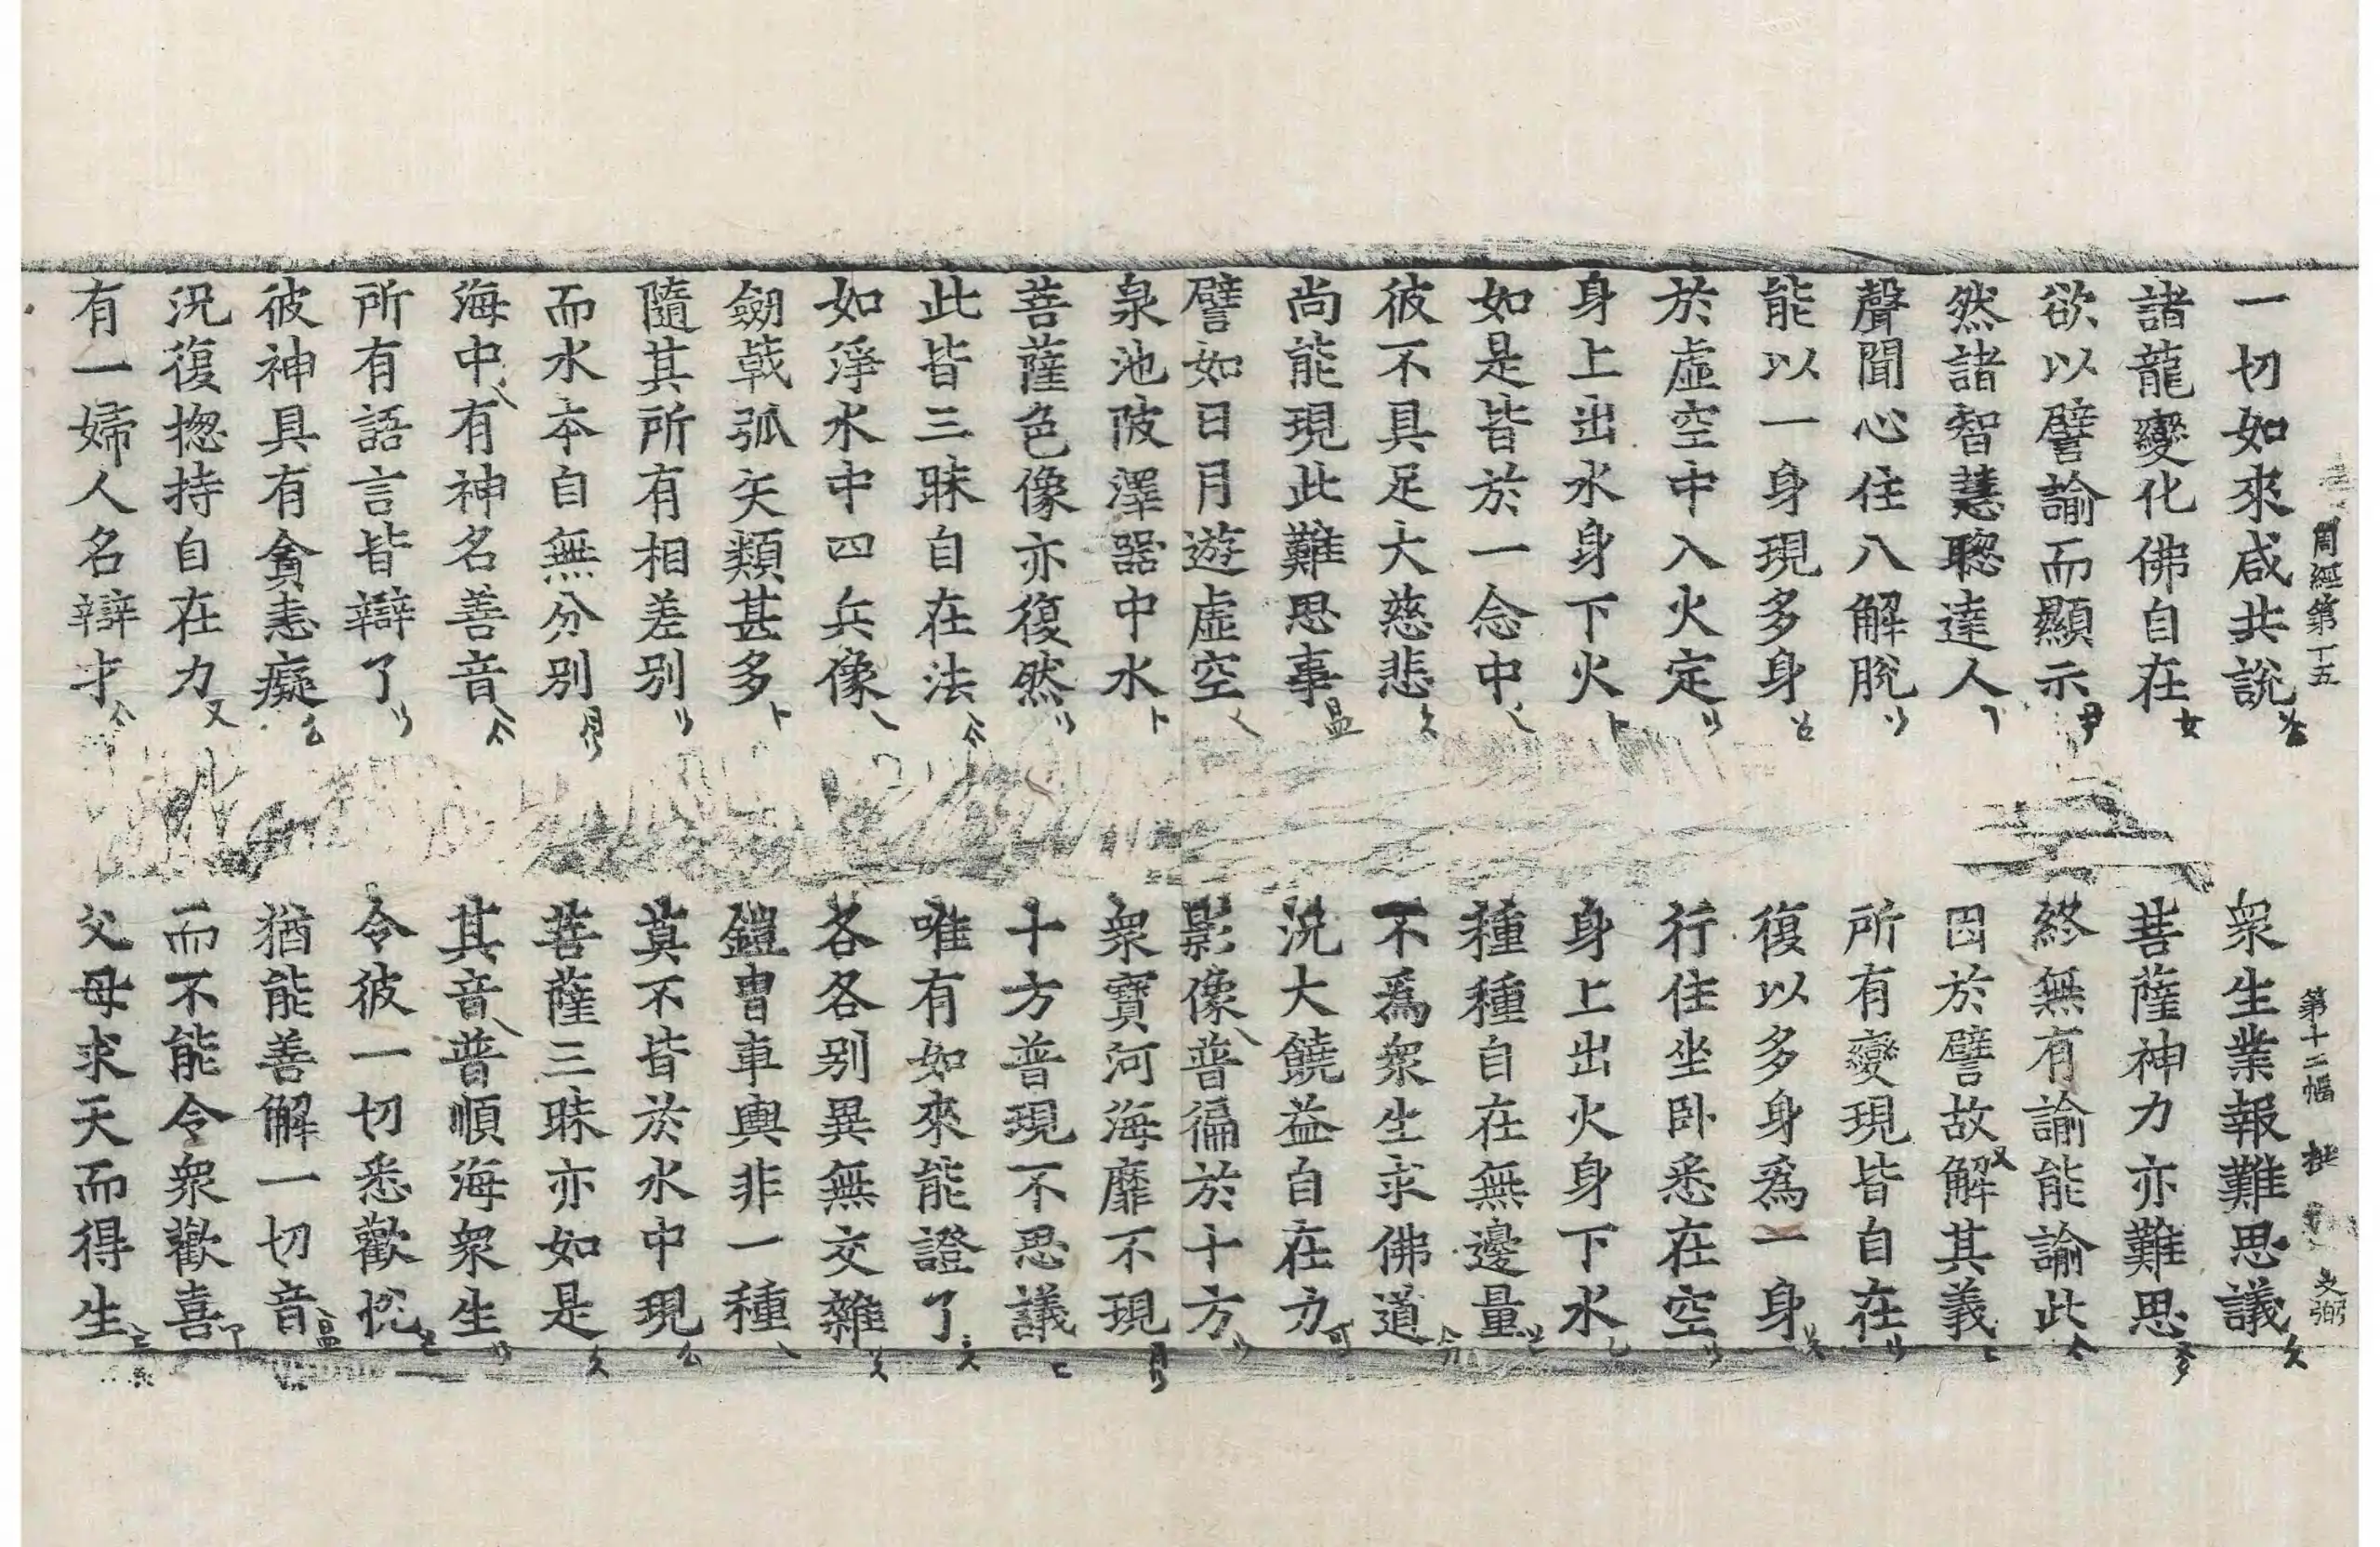 周經第丁五 第十二幅 文弼
一切如來咸共說 衆生業報難思議
諸龍變化佛自在 菩薩神力亦難思
欲以譬諭而顯示 終無有諭能諭此
然諸智慧聰達人 因於譬故解其義
聲聞心住八解脫 所有變現皆自在
能以一身現多身 復以多身爲一身
於虛空中入火定 行住坐卧悉在空
身上出水身下火 身上出火身下水
如是皆於一念中 種種自在無邊量
彼不具足大慈悲 不爲衆生求佛道
尚能現此難思事 況大饒益自在力
譬如日月遊虛空 影像普徧於十方
泉池陂澤器中水 衆寶河海靡不現
菩薩色像亦復然 十方普現不思議
此皆三昧自在法 唯有如來能證了
如淨水中四兵像 各各别異無交雜
劒戟弧矢類甚多 鎧冑車輿非一種
隨其所有相差别 莫不皆於水中現
而水本自無分别 菩薩三昧亦如是
海中有神名善音 其音普順海衆生
所有語言皆辯了 令彼一切悉歡恱
彼神具有貪恚癡 猶能善解一切音
況復揔持自在力 而不能令衆歡喜
有一婦人名辯才 父母求天而得生